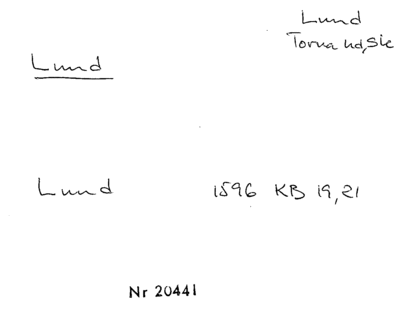 Lund
Torna hd, Ske
Lund
Lund 1596 KB 19, 21
Nr 20441